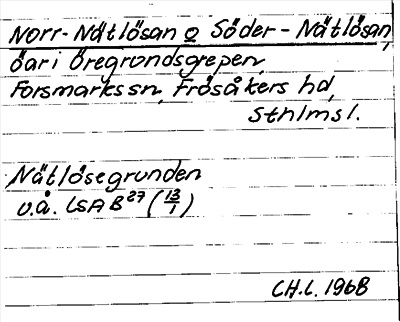 Norr-Nätlösan o Söder-Nätlösan,
öar i Öregrundsgrepen,
Forsmarks sn, Frösåkers hd,
Sthlms l.
Nätlösegrunden
v.å. LSA B²⁷ (13/1)
CH.L. 1968